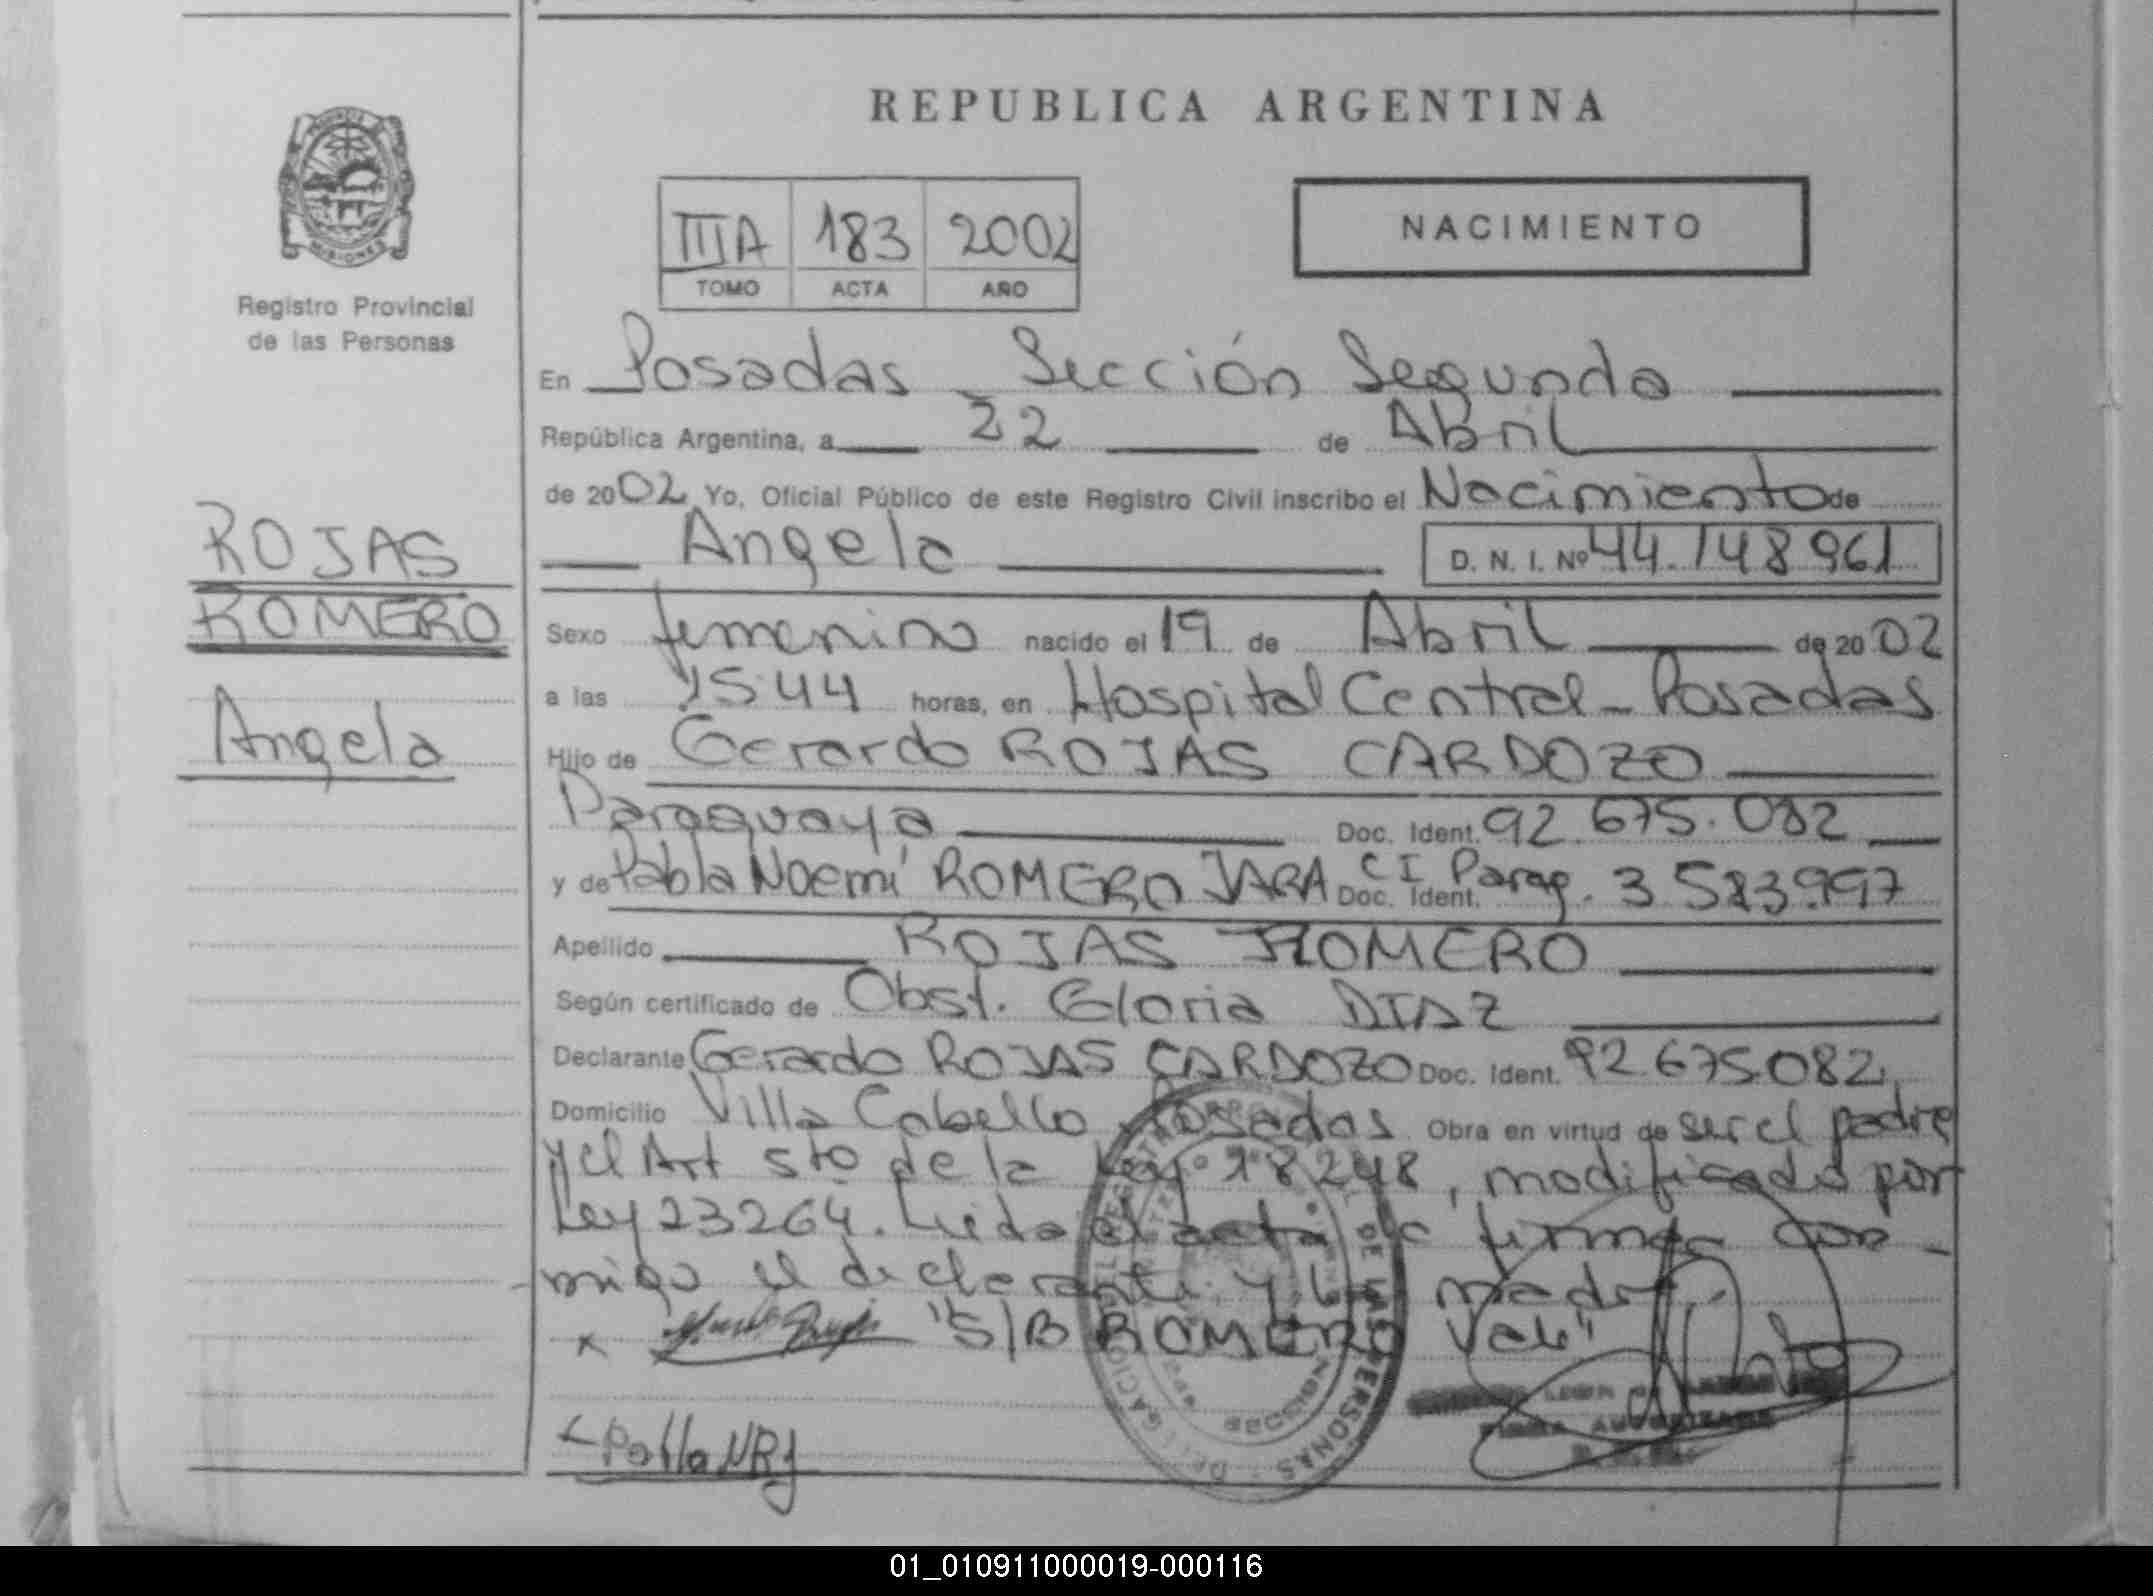 REPUBLICA ARGENTINA
NACIMIENTO
IIIA 183 2002
TOMO ACTA AÑO
MISIONES
Registro Provincial
de las Personas
ROJAS
ROMERO
Angela
En Posadas Sección Segunda
República Argentina, a 22 de Abril
de 2002 Yo, Oficial Público de este Registro Civil inscribo el Nacimiento de
Angela D. N. I. Nº 44.148961
Sexo femenino nacido el 19 de Abril de 2002
a las 1544 horas, en Hospital Central - Posadas
Hijo de Gerardo ROJAS CARDOZO
Paraguaya Doc. Ident. 92.675.082
y de Pabla Noemí ROMERO JARA Doc. Ident. CI Parag. 3583997
Apellido ROJAS ROMERO
Según certificado de Obst. Gloria DIAZ
Declarante Gerardo ROJAS CARDOZO Doc. Ident. 92675082
Domicilio Villa Cabello Posadas Obra en virtud de ser el padre
y el Art 5to de la Ley 18248, modificado por
Ley 23264. Leida el acta la firman con-
migo el declarante y la madre.
x "S/B ROMERO Vale"
Pabla NRJ
01_010911000019-000116